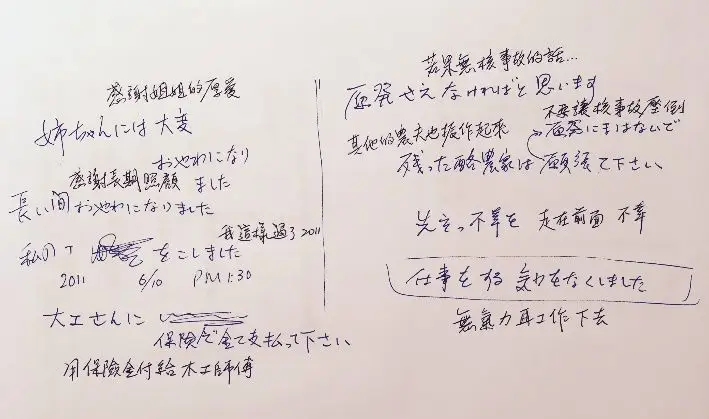 感謝姐姐的厚愛
姉ちゃんには大変
おせわになり
感謝長期照顧 ました
長い間おせわになりました
我這樣過了2011
私の をこしました
2011 6/10 PM 1:30
大工さんに
保険で全て支払って下さい
用保險金付給木工師傅
若果無核事故的話...
原発さえなければと思います
不要讓核事故壓倒
其他的農夫也振作起來
原発にまけないで
残った酪農家は願張て下さい
先立つ不幸を 走在前面 不幸
仕事をする気力をなくしました
無氣力再工作下去